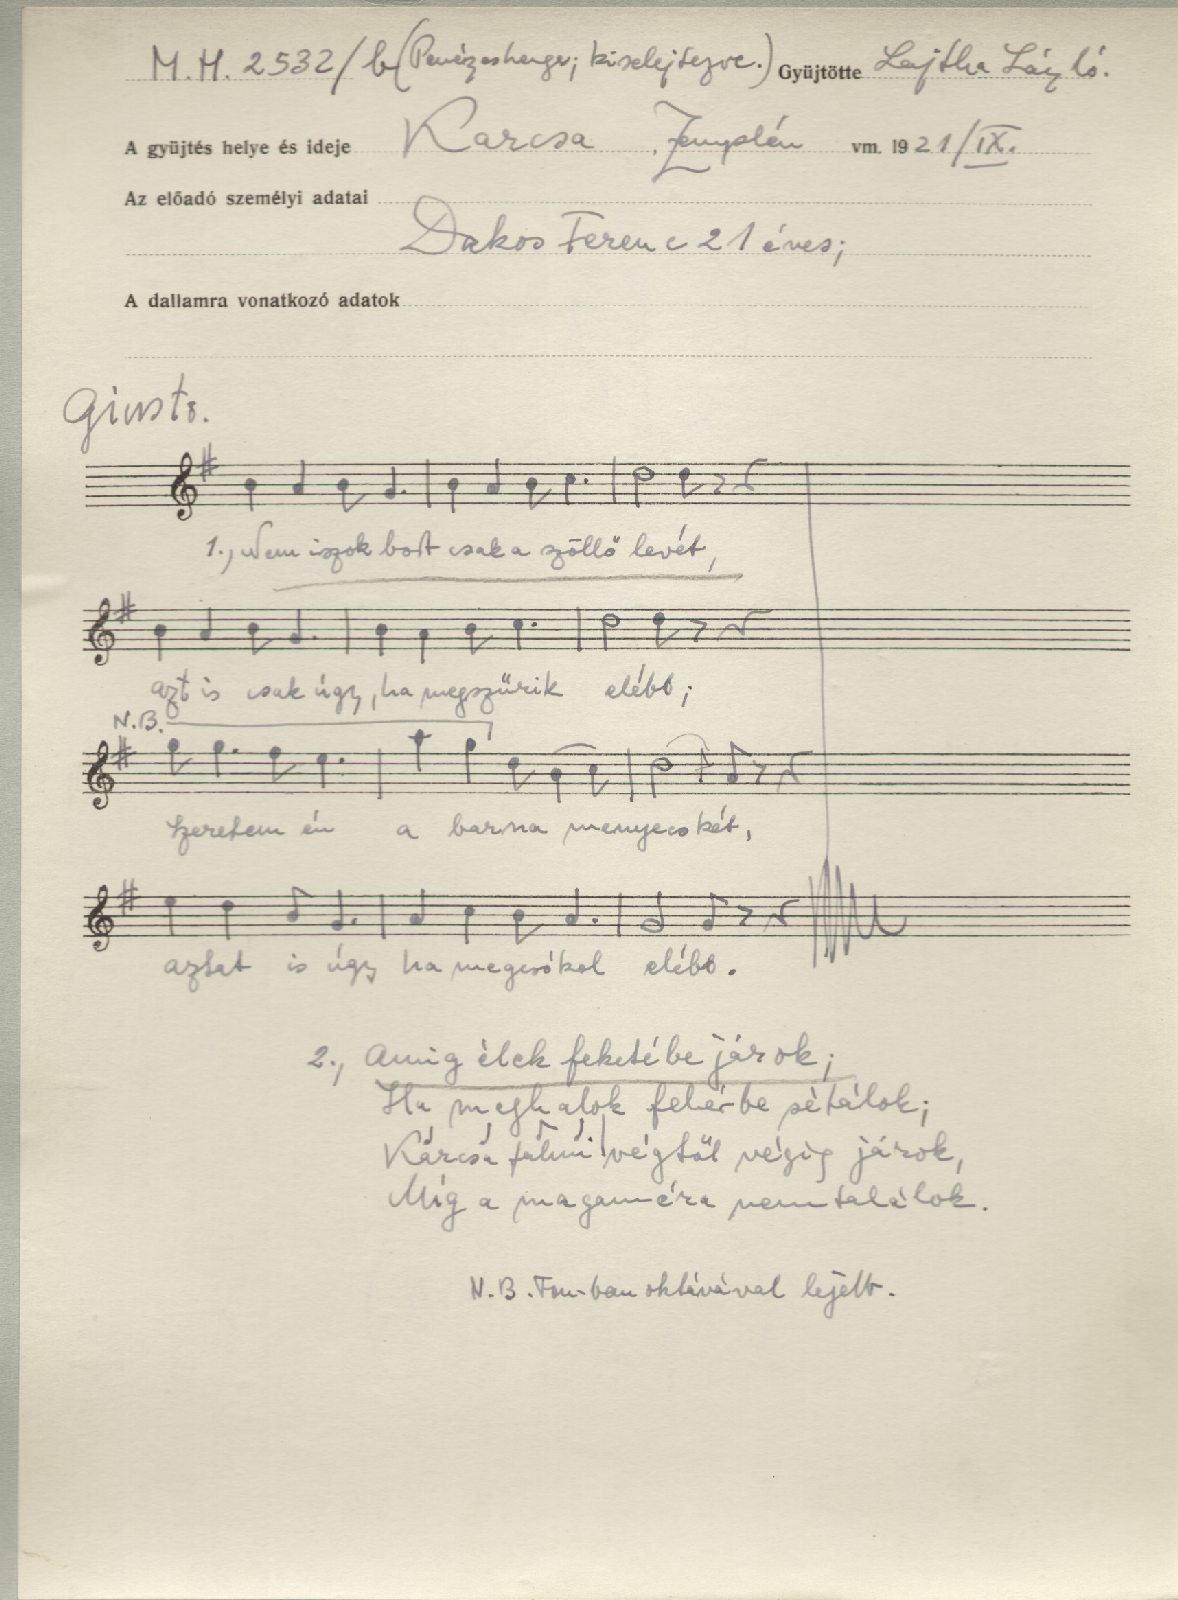 M.H. 2532/b (Penészeshenger; kiselejtezve.) Gyüjtötte Lajtha László.
A gyüjtés helye és ideje Karcsa, Zemplén vm. 1921/IX.
Az előadó személyi adatai
Dakos Ferenc 21 éves;
A dallamra vonatkozó adatok
Giusto.
1., Nem iszok bort csak a szőllő levét,
azt is csak úgy, ha megszűrik elébb;
N.B.
Szeretem én a barna menyecskét,
aztat is úgy ha megcsókol elébb.
2., Amig élek feketébe járok;
Ha meghalok fehérbe sétálok;
Karcsa falui végtől végig járok,
Míg a magaméra nem találok.
N.B. Fon-ban oktávával lejebb.